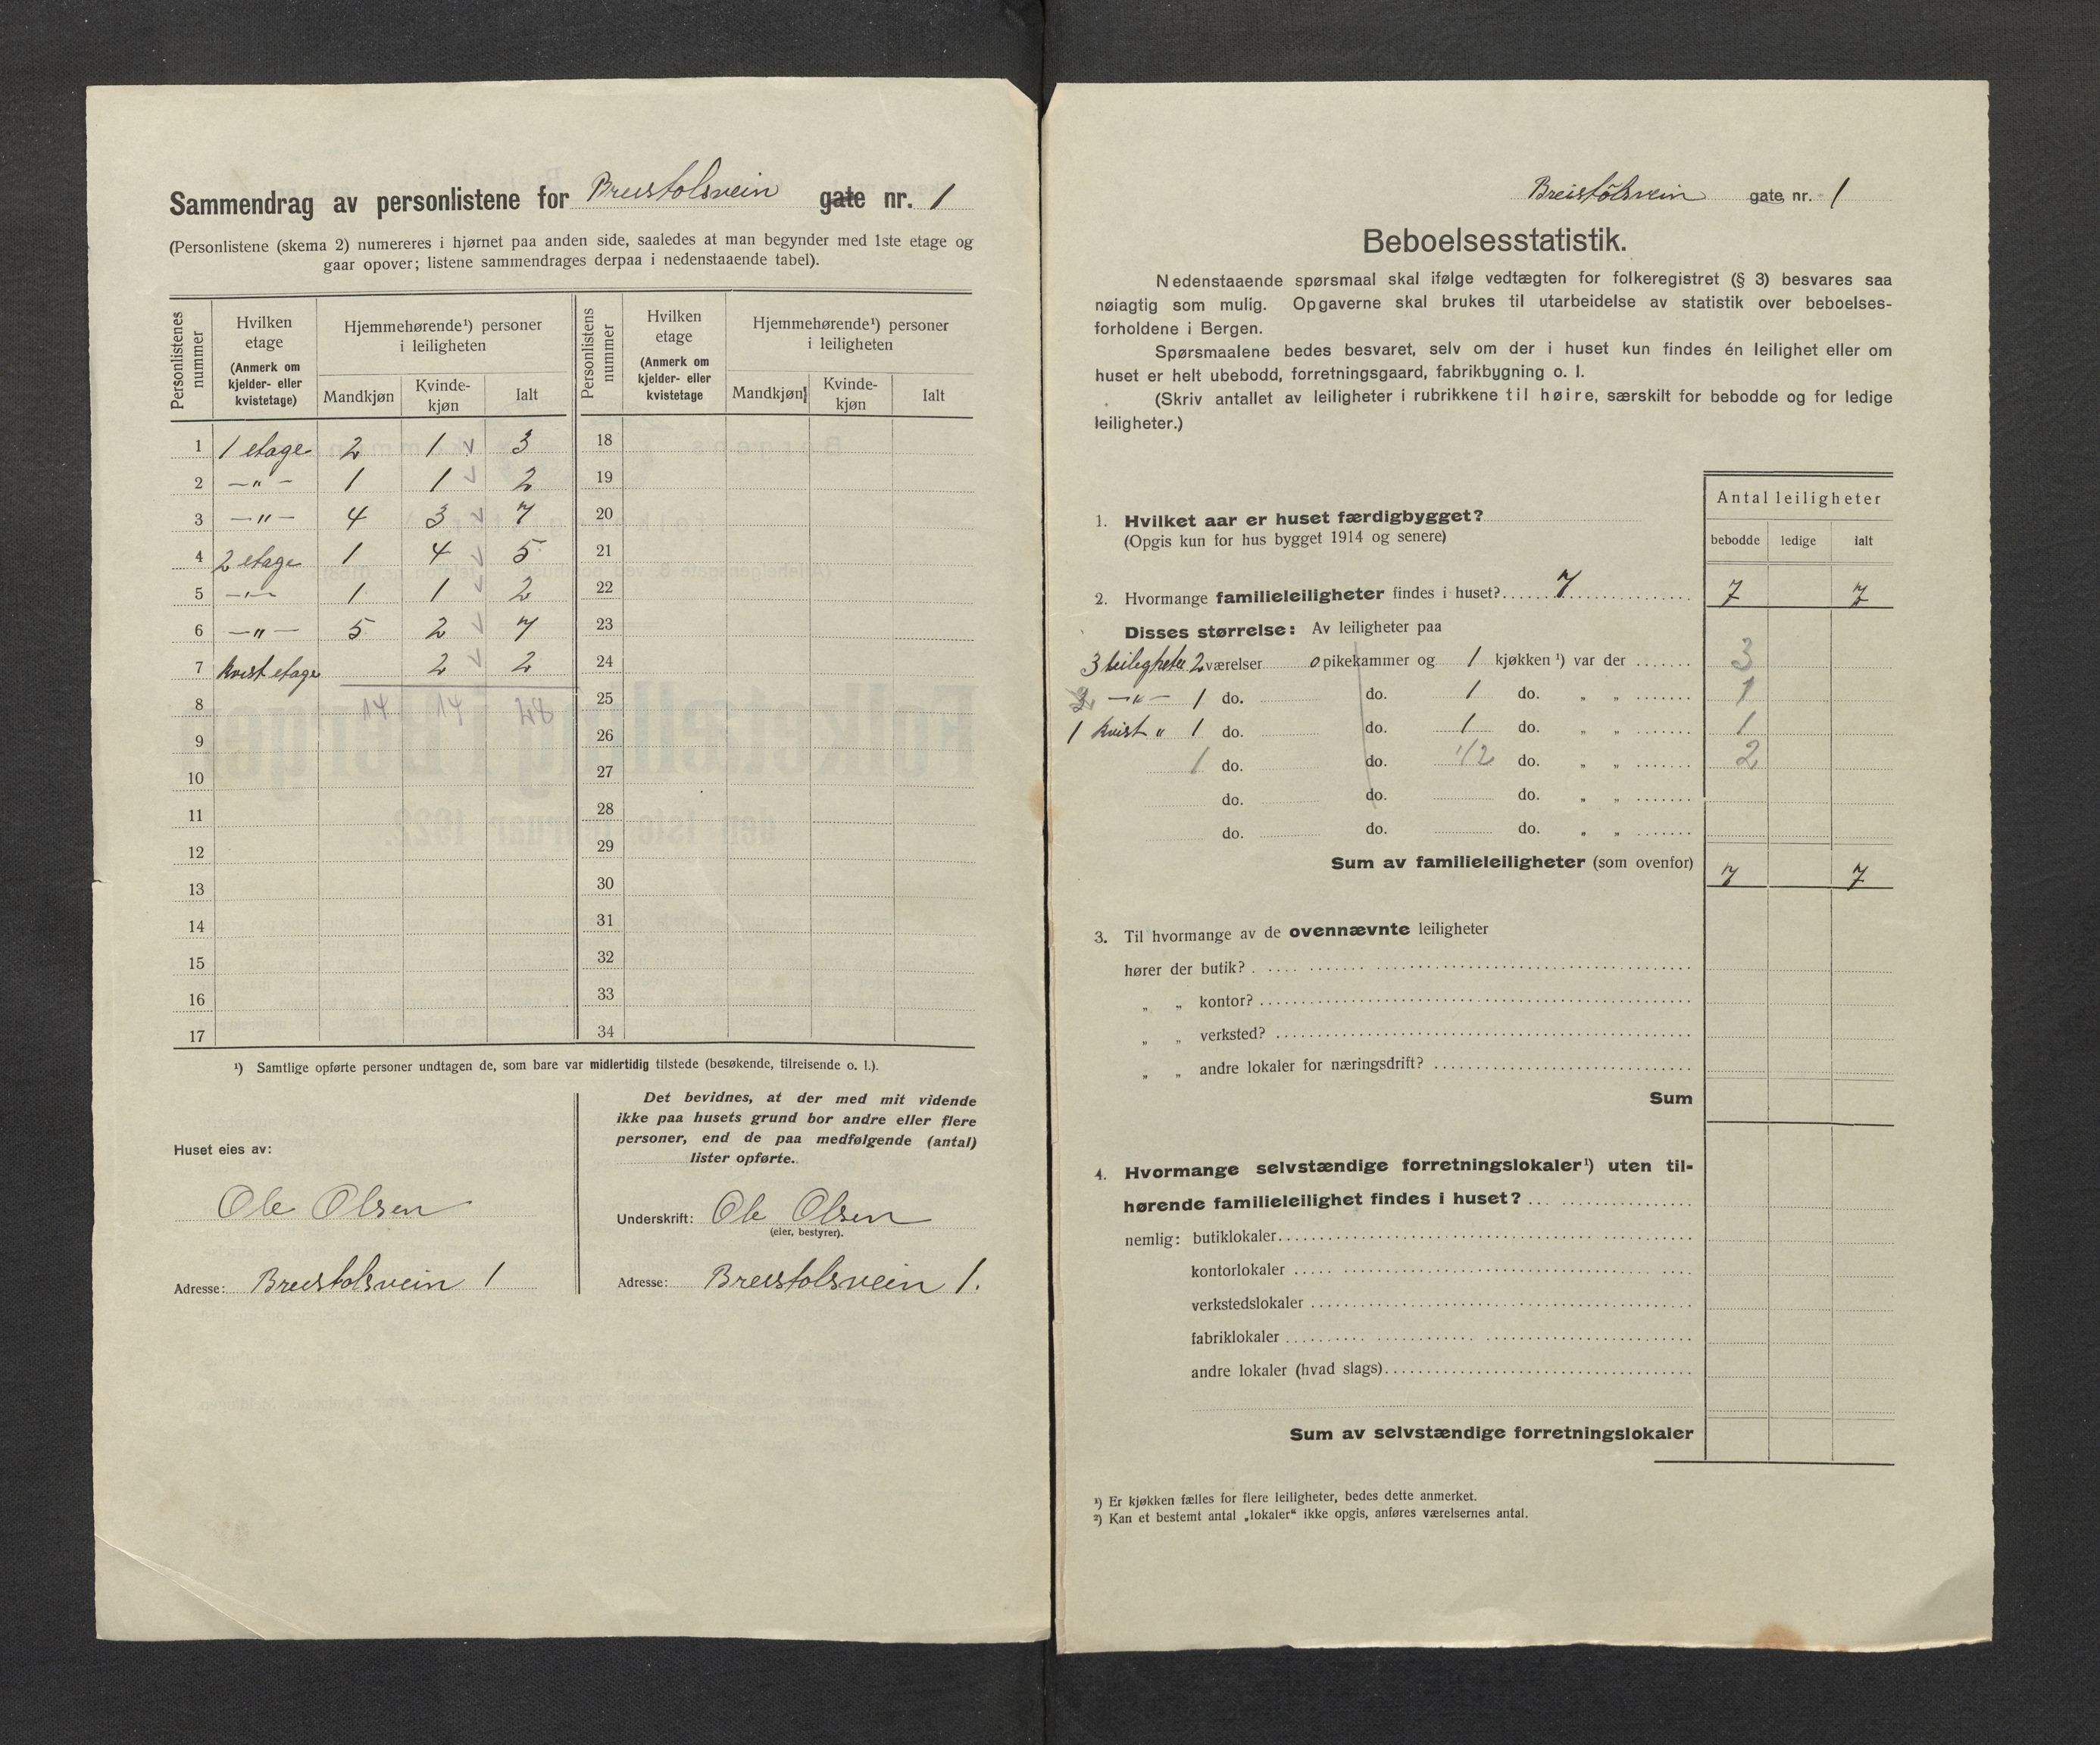 Sammendrag av personlistene for Breistolsvein gate nr. 1
(Personlistene (skema 2) numereres i hjørnet paa anden side, saaledes at man begynder med 1ste etage og
gaar opover; listene sammendrages derpaa i nedenstaaende tabel).
Personlistenes nummer | Hvilken etage (Anmerk om kjelder- eller kvistetage) | Hjemmehørende¹) personer i leiligheten | Mandkjøn | Kvindekjøn | Ialt
1 1 etage 2 1 v 3
2 —"— 1 1 v 2
3 —"— 4 3 v 7
4 2 etage 1 4 v 5
5 —"— 1 1 v 2
6 —"— 5 2 v 7
7 kvist etage 2 v 2
8 14 14 28
9
10
11
12
13
14
15
16
17
Personlistens nummer | Hvilken etage (Anmerk om kjelder- eller kvistetage | Hjemmehørende¹) personer i leiligheten | Mandkjøn | Kvinde-kjøn | Ialt
18
19
20
21
22
23
24
25
26
27
28
29
30
31
32
33
34
¹) Samtlige opførte personer undtagen de, som bare var midlertidig tilstede (besøkende, tilreisende o. l.).
Huset eies av:
Ole Olsen
Adresse: Breistolsvein 1
Det bevidnes, at der med mit vidende
ikke paa husets grund bor andre eller flere
personer, end de paa medfølgende (antal)
lister opførte.
Underskrift: Ole Olsen
(eier, bestyrer).
Adresse: Breistolsvein 1.
Breistölsvein gate nr. 1
Beboelsesstatistik.
Nedenstaaende spørsmaal skal ifølge vedtægten for folkeregistret (§ 3) besvares saa
nøiagtig som mulig. Opgaverne skal brukes til utarbeidelse av statistik over beboelses-
forholdene i Bergen.
Spørsmaalene bedes besvaret, selv om der i huset kun findes én leilighet eller om
huset er helt ubebodd, forretningsgaard, fabrikbygning o. l.
(Skriv antallet av leiligheter i rubrikkene til høire, særskilt for bebodde og for ledige
leiligheter.)
Antal leiligheter
bebodde ledige ialt
1. Hvilket aar er huset færdigbygget?
(Opgis kun for hus bygget 1914 og senere)
2. Hvormange familieleiligheter findes i huset? 7 7 7
Disses størrelse: Av leiligheter paa
3 leiligheter 2 værelser 0 pikekammer og 1 kjøkken ¹) var der 3
—"— 1 do. do. 1 do. „ „ 1
1 kvist " 1 do. do. 1 do. „ „ 1
1 do. do. 1/2 do. „ „ 2
do. do. do. „ „
do. do. do. „ „
Sum av familieleiligheter (som ovenfor) 7 7
3. Til hvormange av de ovennævnte leiligheter
hører der butik?
„ „ kontor?
„ „ verksted?
„ „ andre lokaler for næringsdrift?
Sum
4. Hvormange selvstændige forretningslokaler¹) uten til-
hørende familieleilighet findes i huset?
nemlig: butiklokaler
kontorlokaler
verkstedslokaler
fabriklokaler
andre lokaler (hvad slags)
Sum av selvstændige forretningslokaler
¹) Er kjøkken fælles for flere leiligheter, bedes dette anmerket.
²) Kan et bestemt antal „lokaler“ ikke opgis, anføres værelsernes antal.